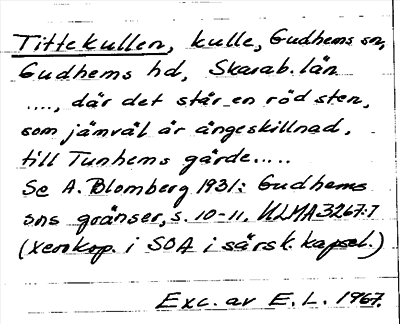 Tittekullen, kulle, Gudhems sn,
Gudhems hd, Skarab. län
...., där det står en röd sten,
som jämväl är ängeskillnad.
till Tunhems gärde.....
Se A. Blomberg 1931: Gudhems
sns gränser, s. 10-11, ULMA 3267:7
(Xerokop. i SOA i särsk. kapsel.)
Exc. av E. L. 1967.